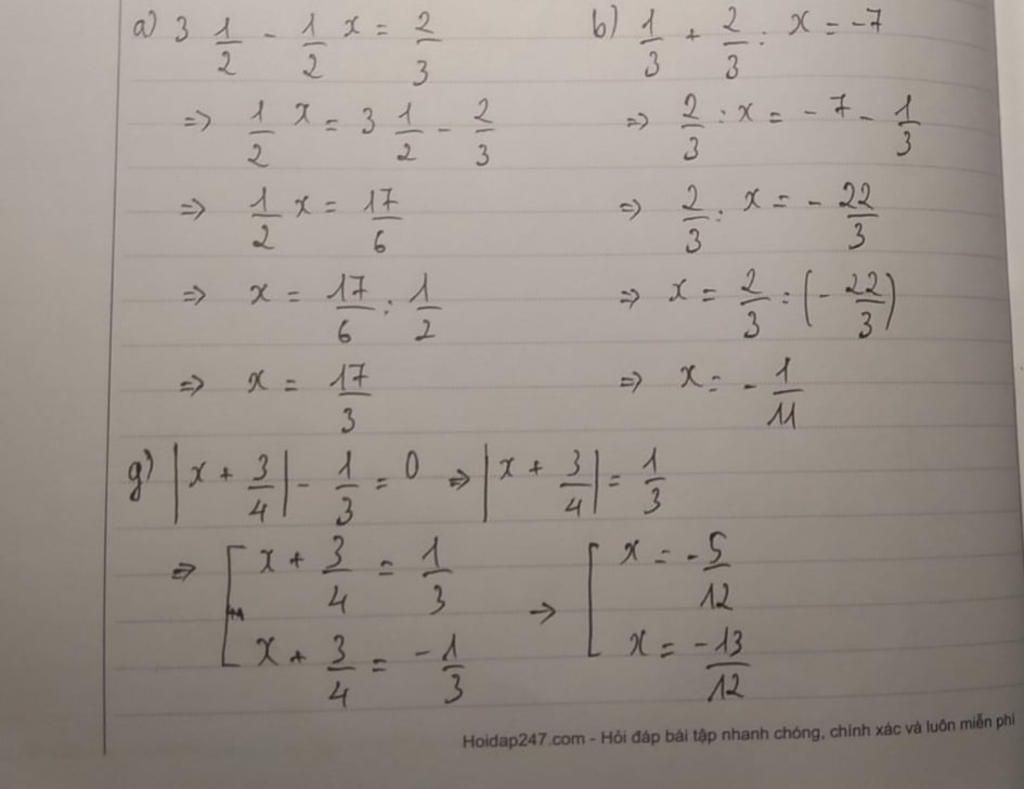 a) 3 1/2 - 1/2 x = 2/3
=> 1/2 x = 3 1/2 - 2/3
=> 1/2 x = 17/6
=> x = 17/6 : 1/2
=> x = 17/3
b) 1/3 + 2/3 : x = -7
=> 2/3 : x = -7 - 1/3
=> 2/3 : x = - 22/3
=> x = 2/3 : (- 22/3)
=> x = - 1/11
g) |x + 3/4| - 1/3 = 0 => |x + 3/4| = 1/3
=> [ x + 3/4 = 1/3 => [ x = -5/12
x + 3/4 = -1/3 x = -13/12
Hoidap247.com - Hỏi đáp bài tập nhanh chóng, chính xác và luôn miễn phí